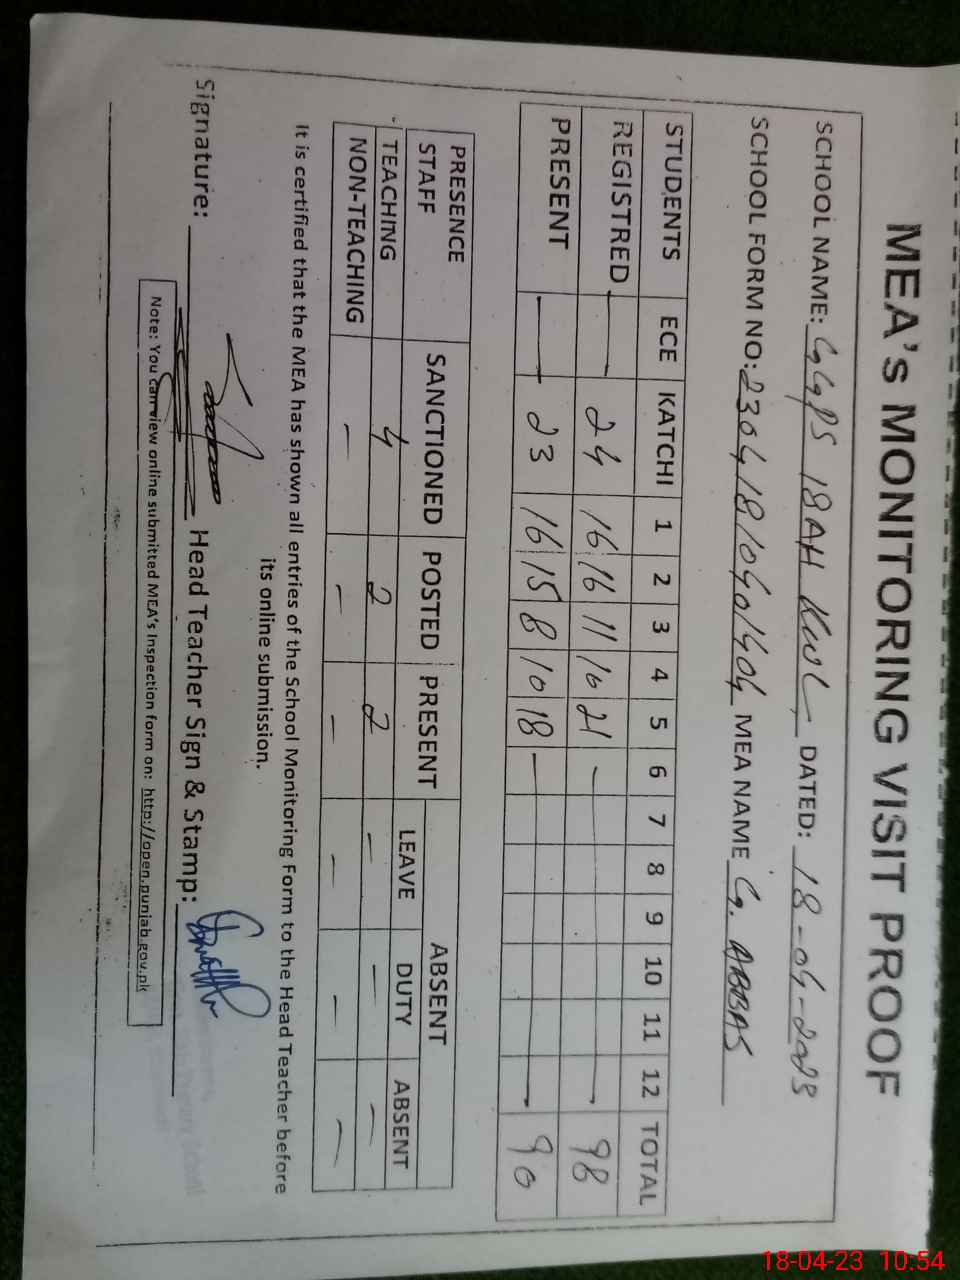 MEA's MONITORING VISIT PROOF
SCHOOL NAME: GGPS 18AH KWL DATED: 18-04-2023
SCHOOL FORM NO: 23041810401404 MEA NAME G. ABBAS
STUDENTS ECE KATCHI 1 2 3 4 5 6 7 8 9 10 11 12 TOTAL
REGISTRED — 24 16 16 11 10 21 — 98
PRESENT — 23 16 15 8 10 18 — 90
PRESENCE STAFF SANCTIONED POSTED PRESENT ABSENT
LEAVE DUTY ABSENT
TEACHING 4 2 2 — — —
NON-TEACHING — — — — — —
It is certified that the MEA has shown all entries of the School Monitoring Form to the Head Teacher before
its online submission.
Signature: Head Teacher Sign & Stamp:
Note: You can view online submitted MEA's Inspection form on: http://open.punjab.gov.pk
18-04-23 10:54